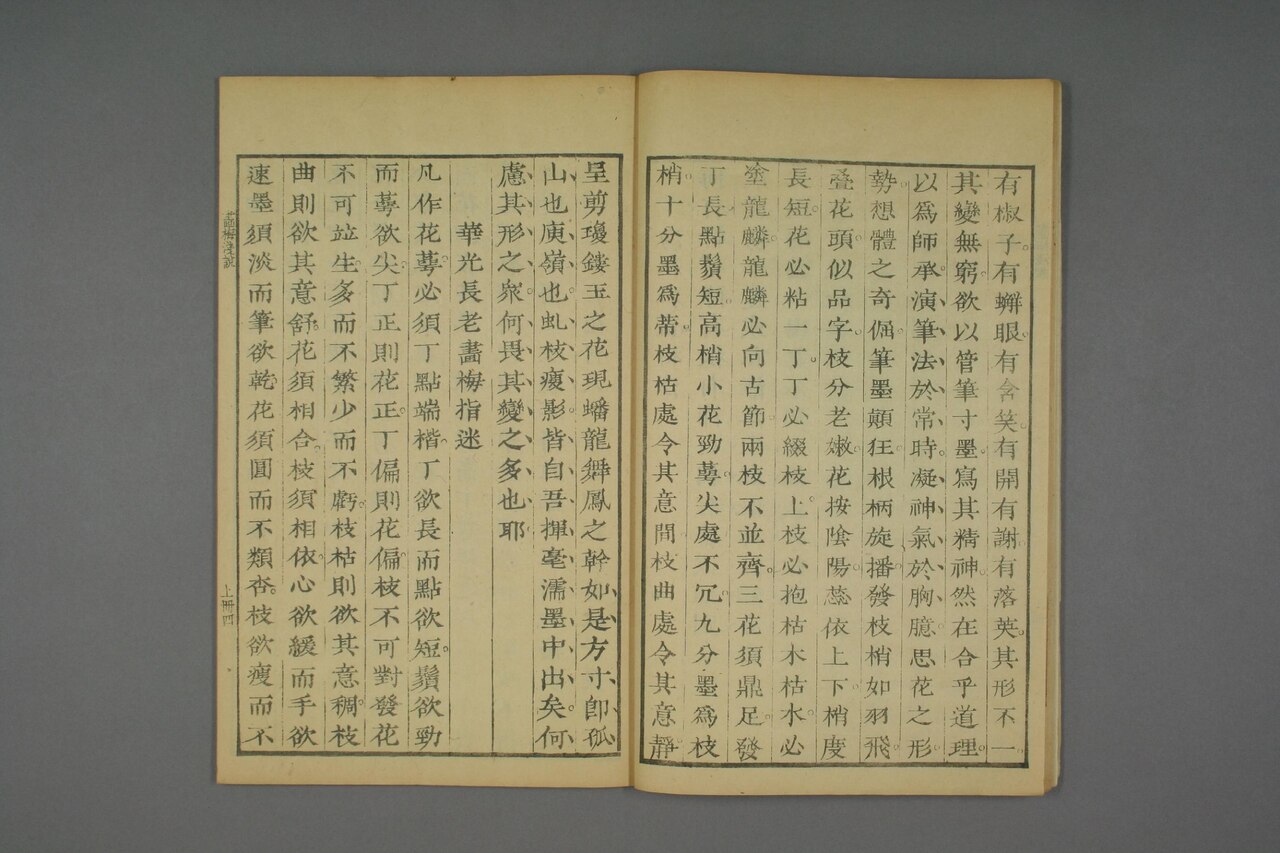 有椒子有蠏眼有含笑有開有謝有落英其形不一
其變無窮欲以管筆寸墨寫其精神然在合乎道理
以爲師承演筆法於常時凝神氣於胸臆思花之形
勢想體之奇倔筆墨顛狂根柄旋播發枝梢如羽飛
疊花頭似品字枝分老嫩花按陰陽蕊依上下梢度
長短花必粘一丁丁必綴枝上枝必抱枯木枯水必
塗龍麟龍麟必向古節兩枝不並齊三花須鼎足發
丁長點鬚短高梢小花勁萼尖處不冗九分墨爲枝
梢十分墨爲蒂枝枯處令其意間枝曲處令其意靜
呈剪瓊鏤玉之花現蟠龍舞鳳之幹如是方寸卽孤
山也庾嶺也虬枝瘦影皆自吾揮毫濡墨中出矣何
慮其形之衆何畏其變之多也耶
華光長老畵梅指迷
凡作花萼必須丁點端楷丁欲長而點欲短鬚欲勁
而萼欲尖丁正則花正丁偏則花偏枝不可對發花
不可竝生多而不繁少而不虧枝枯則欲其意稠枝
曲則欲其意舒花須相合枝須相依心欲緩而手欲
速墨須淡而筆欲乾花須圓而不類杏枝欲瘦而不
上冊四